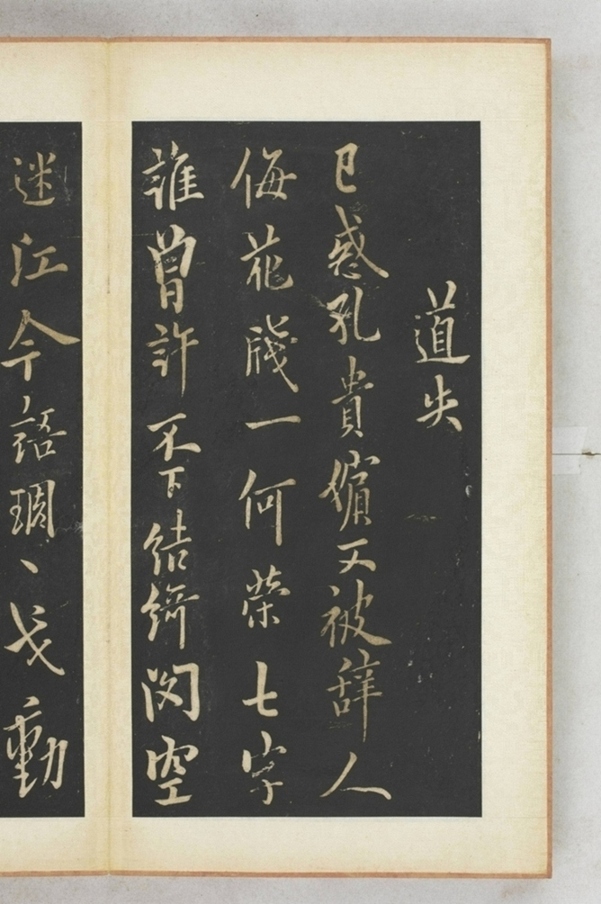 道失
已惑孔貴嬪又被辭人
侮花牋一何榮七字
誰曾許不下結綺閣空
迷江令語琱戈動